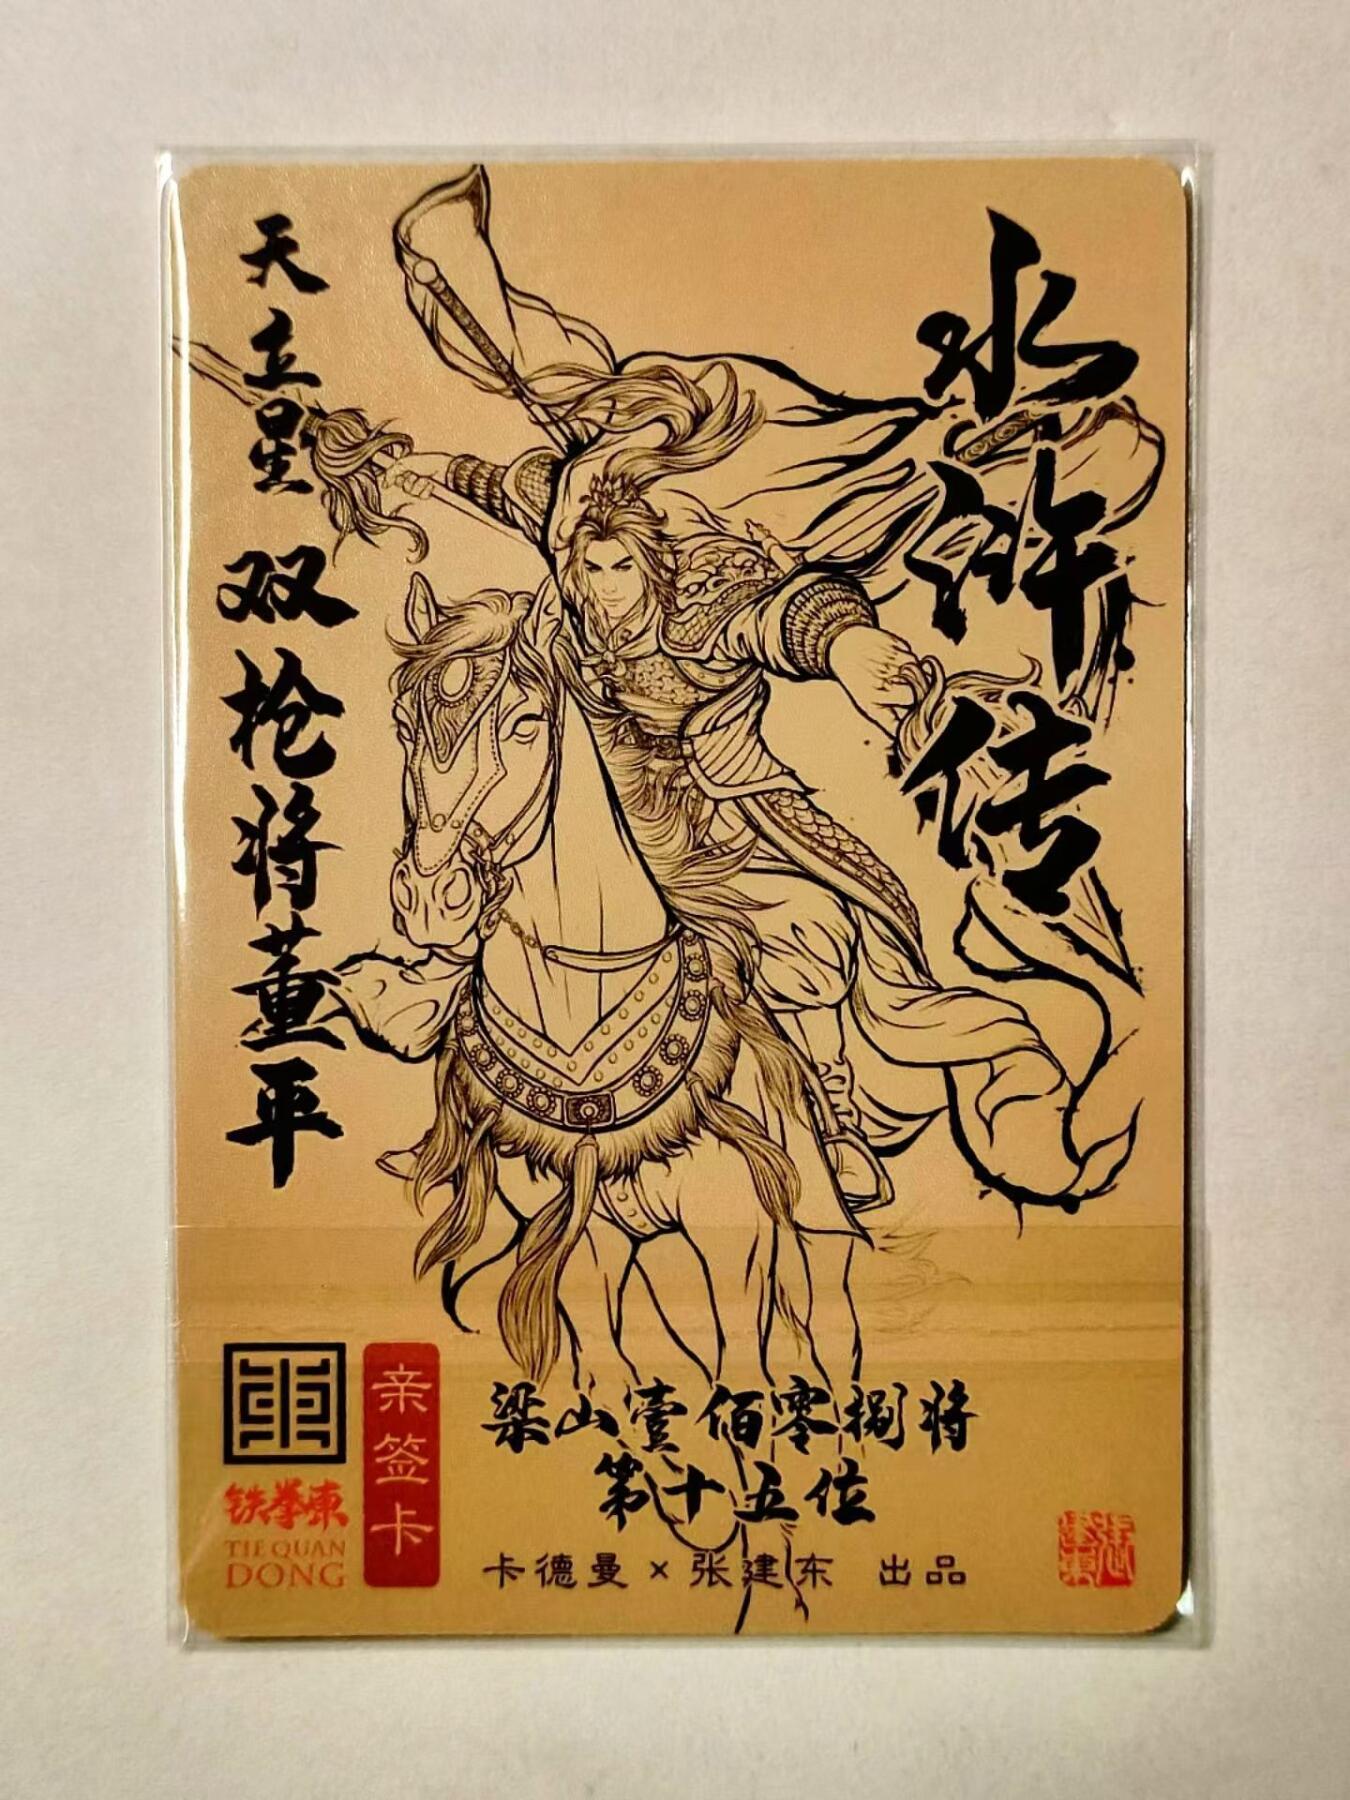 水浒传
天立星 双枪将董平
梁山壹佰零捌将
第十五位
卡德曼×张建东 出品
亲签卡
铁拳东
TIE QUAN
DONG